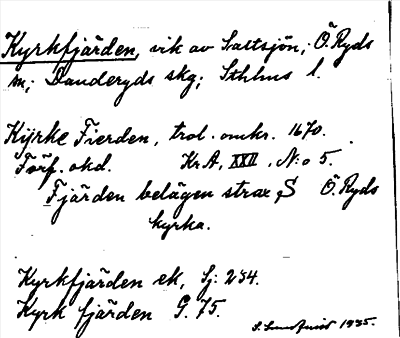 Kyrkfjärden, vik av Saltsjön, Ö. Ryds
m; Danderyds skg; Sthlms l.
Kyrke Fierden, trol. omkr. 1670.
Förf. okd. Kr A, XXII, N:o 5.
Fjärden belägen strax S Ö. Ryds
kyrka.
Kyrkfjärden ek, Sj: 234.
Kyrk fjärden G. 75.
S. Lundqvist 1935.